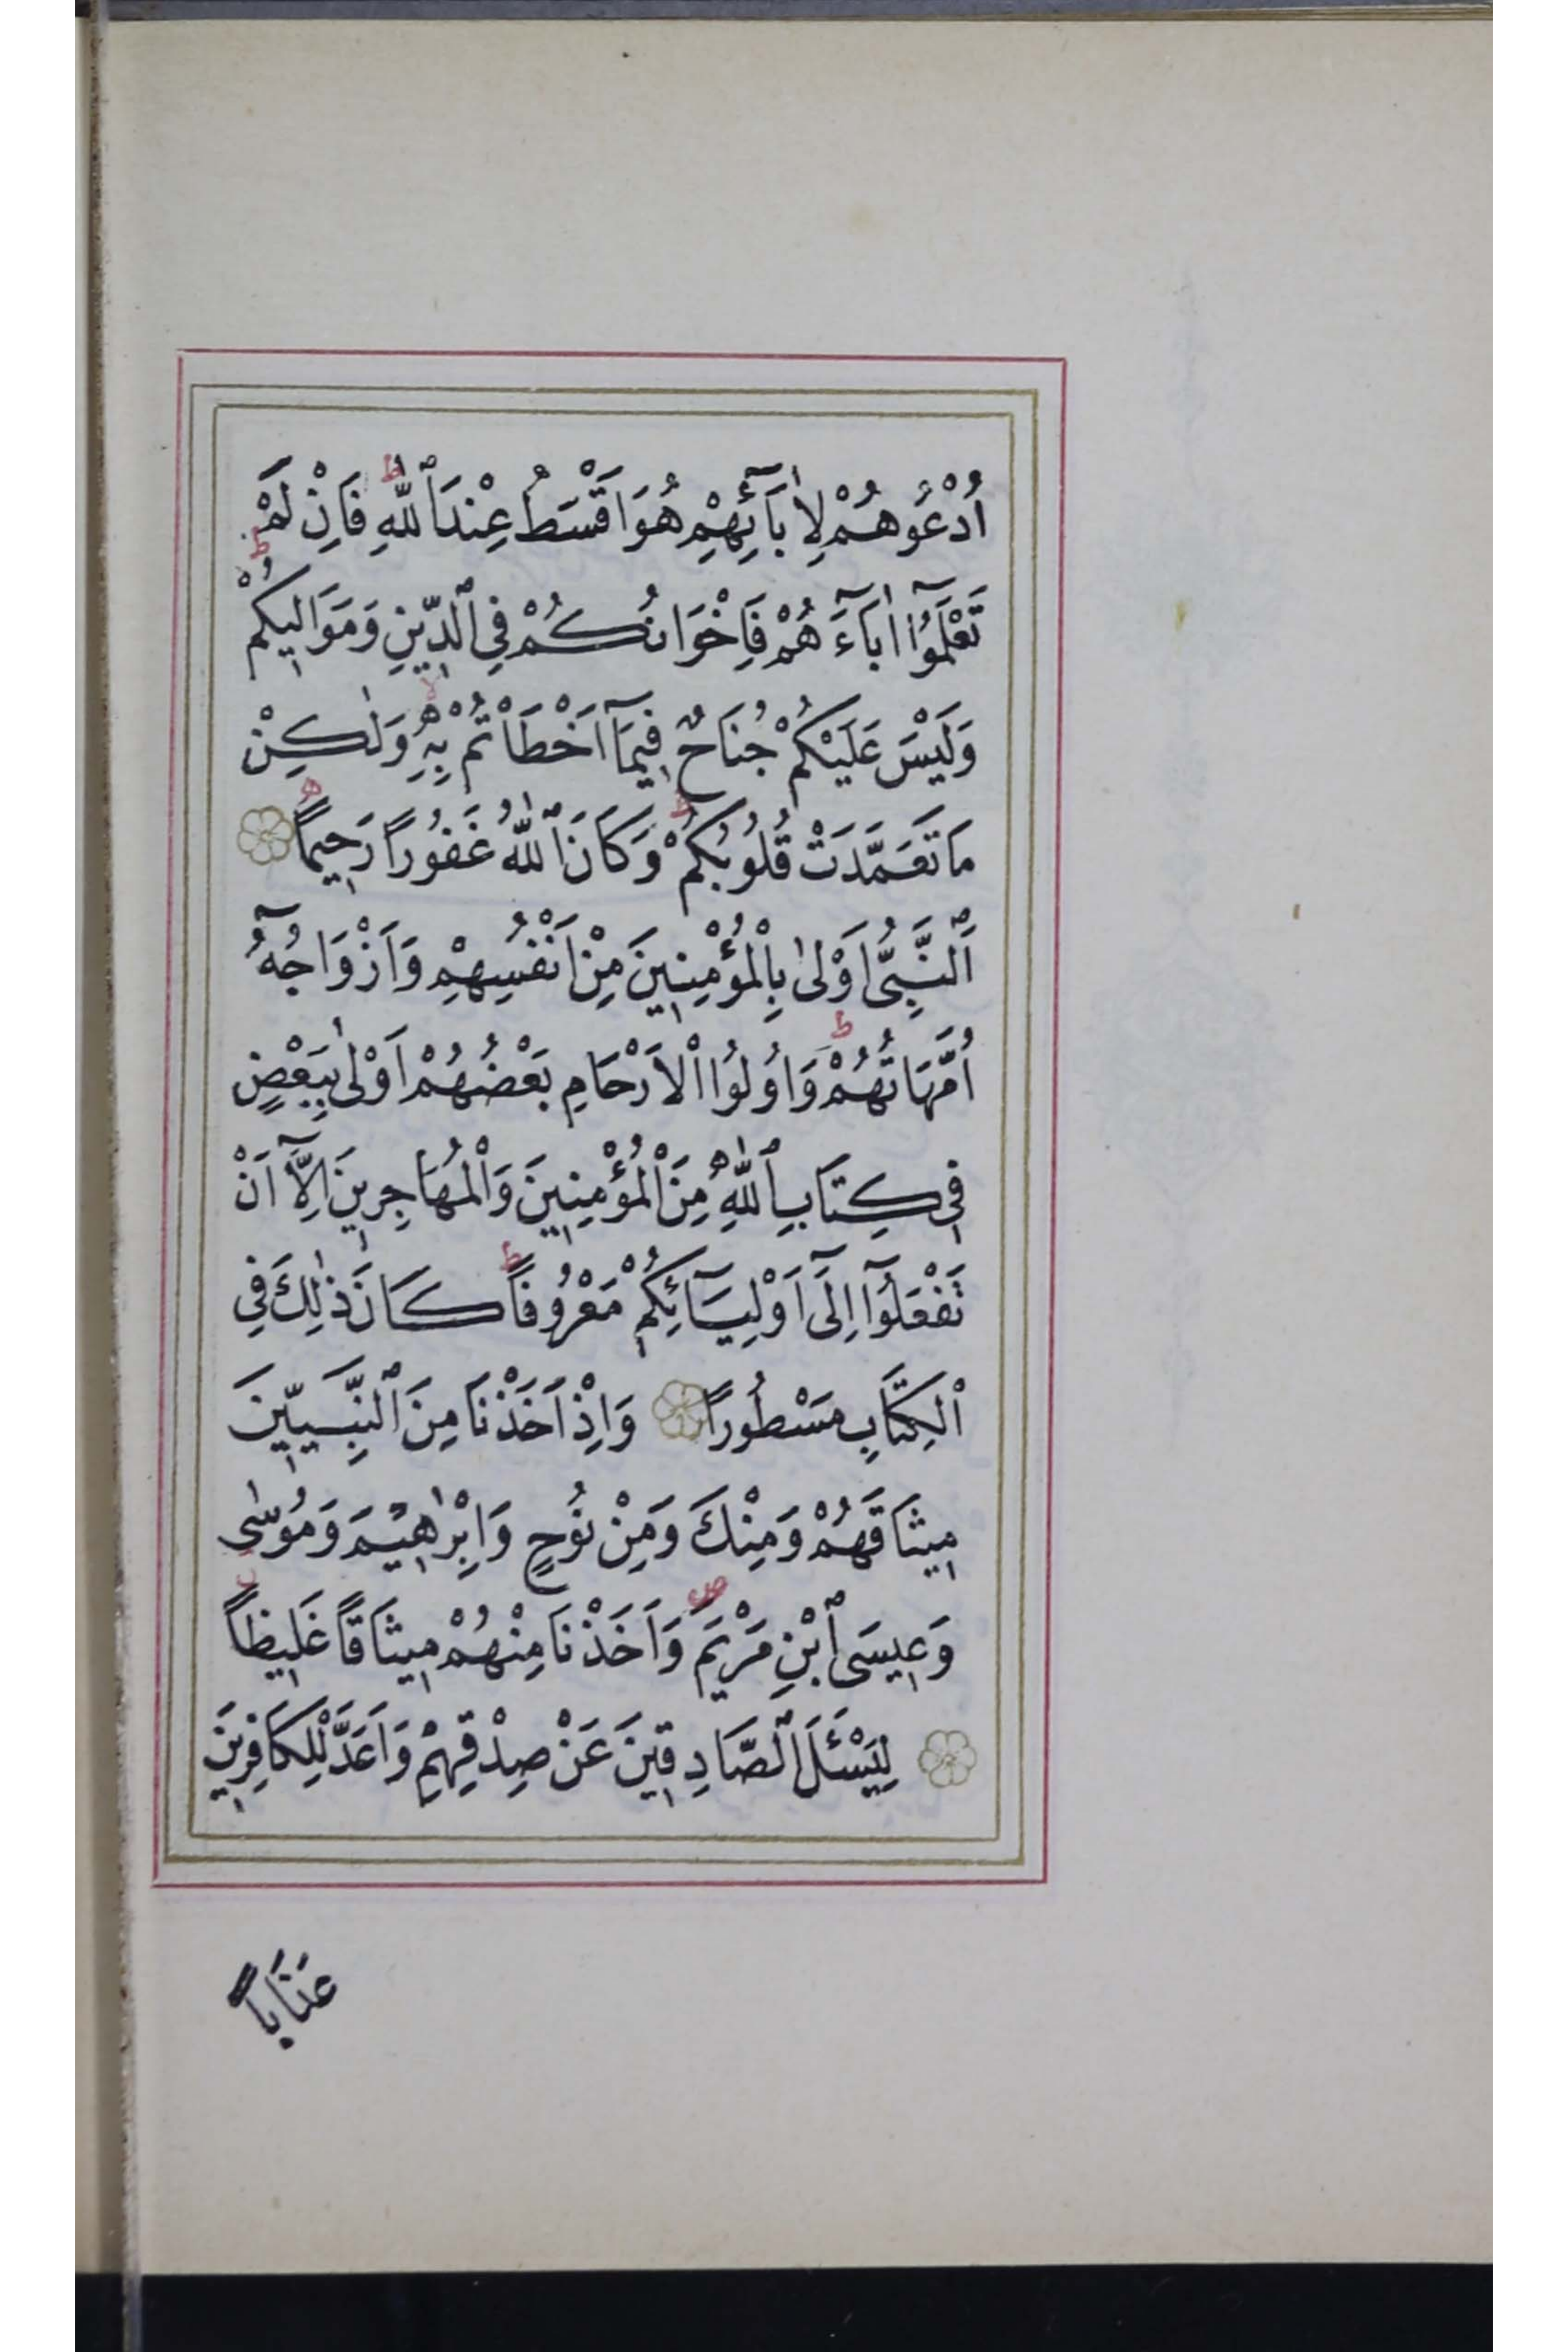 اُدْعُوهُمْ لِاٰبَٓائِهِمْ هُوَ اَقْسَطُ عِنْدَ ٱللّٰهِ ط فَاِنْ لَمْ
تَعْلَمُٓوا اٰبَٓاءَهُمْ فَاِخْوَانُكُمْ فِي ٱلدِّينِ وَمَوَالِيكُمْ ط
وَلَيْسَ عَلَيْكُمْ جُنَاحٌ فِيمَٓا اَخْطَاْتُمْ بِهِ لا وَلٰكِنْ
مَا تَعَمَّدَتْ قُلُوبُكُمْ ط وَكَانَ ٱللّٰهُ غَفُورًا رَحِيمًا ه
اَلنَّبِىُّ اَوْلىٰ بِالْمُؤْمِنِينَ مِنْ اَنْفُسِهِمْ وَاَزْوَاجُهُٓ
اُمَّهَاتُهُمْ ط وَاُولُوا الْاَرْحَامِ بَعْضُهُمْ اَوْلىٰ بِبَعْضٍ
فِي كِتَابِ ٱللّٰهِ مِنَ الْمُؤْمِنِينَ وَالْمُهَاجِرِينَ اِلَّٓا اَنْ
تَفْعَلُٓوا اِلَٓى اَوْلِيَٓائِكُمْ مَعْرُوفًا ط كَانَ ذٰلِكَ فِي
الْكِتَابِ مَسْطُورًا وَاِذْ اَخَذْنَا مِنَ ٱلنَّبِيِّينَ
مِيثَاقَهُمْ وَمِنْكَ وَمِنْ نُوحٍ وَاِبْرٰهِيمَ وَمُوسٰى
وَعِيسَى ٱبْنِ مَرْيَمَ ص وَاَخَذْنَا مِنْهُمْ مِيثَاقًا غَلِيظًا
لِيَسْئَلَ ٱلصَّادِقِينَ عَنْ صِدْقِهِمْ وَاَعَدَّ لِلْكَافِرِينَ
عَذَابًا